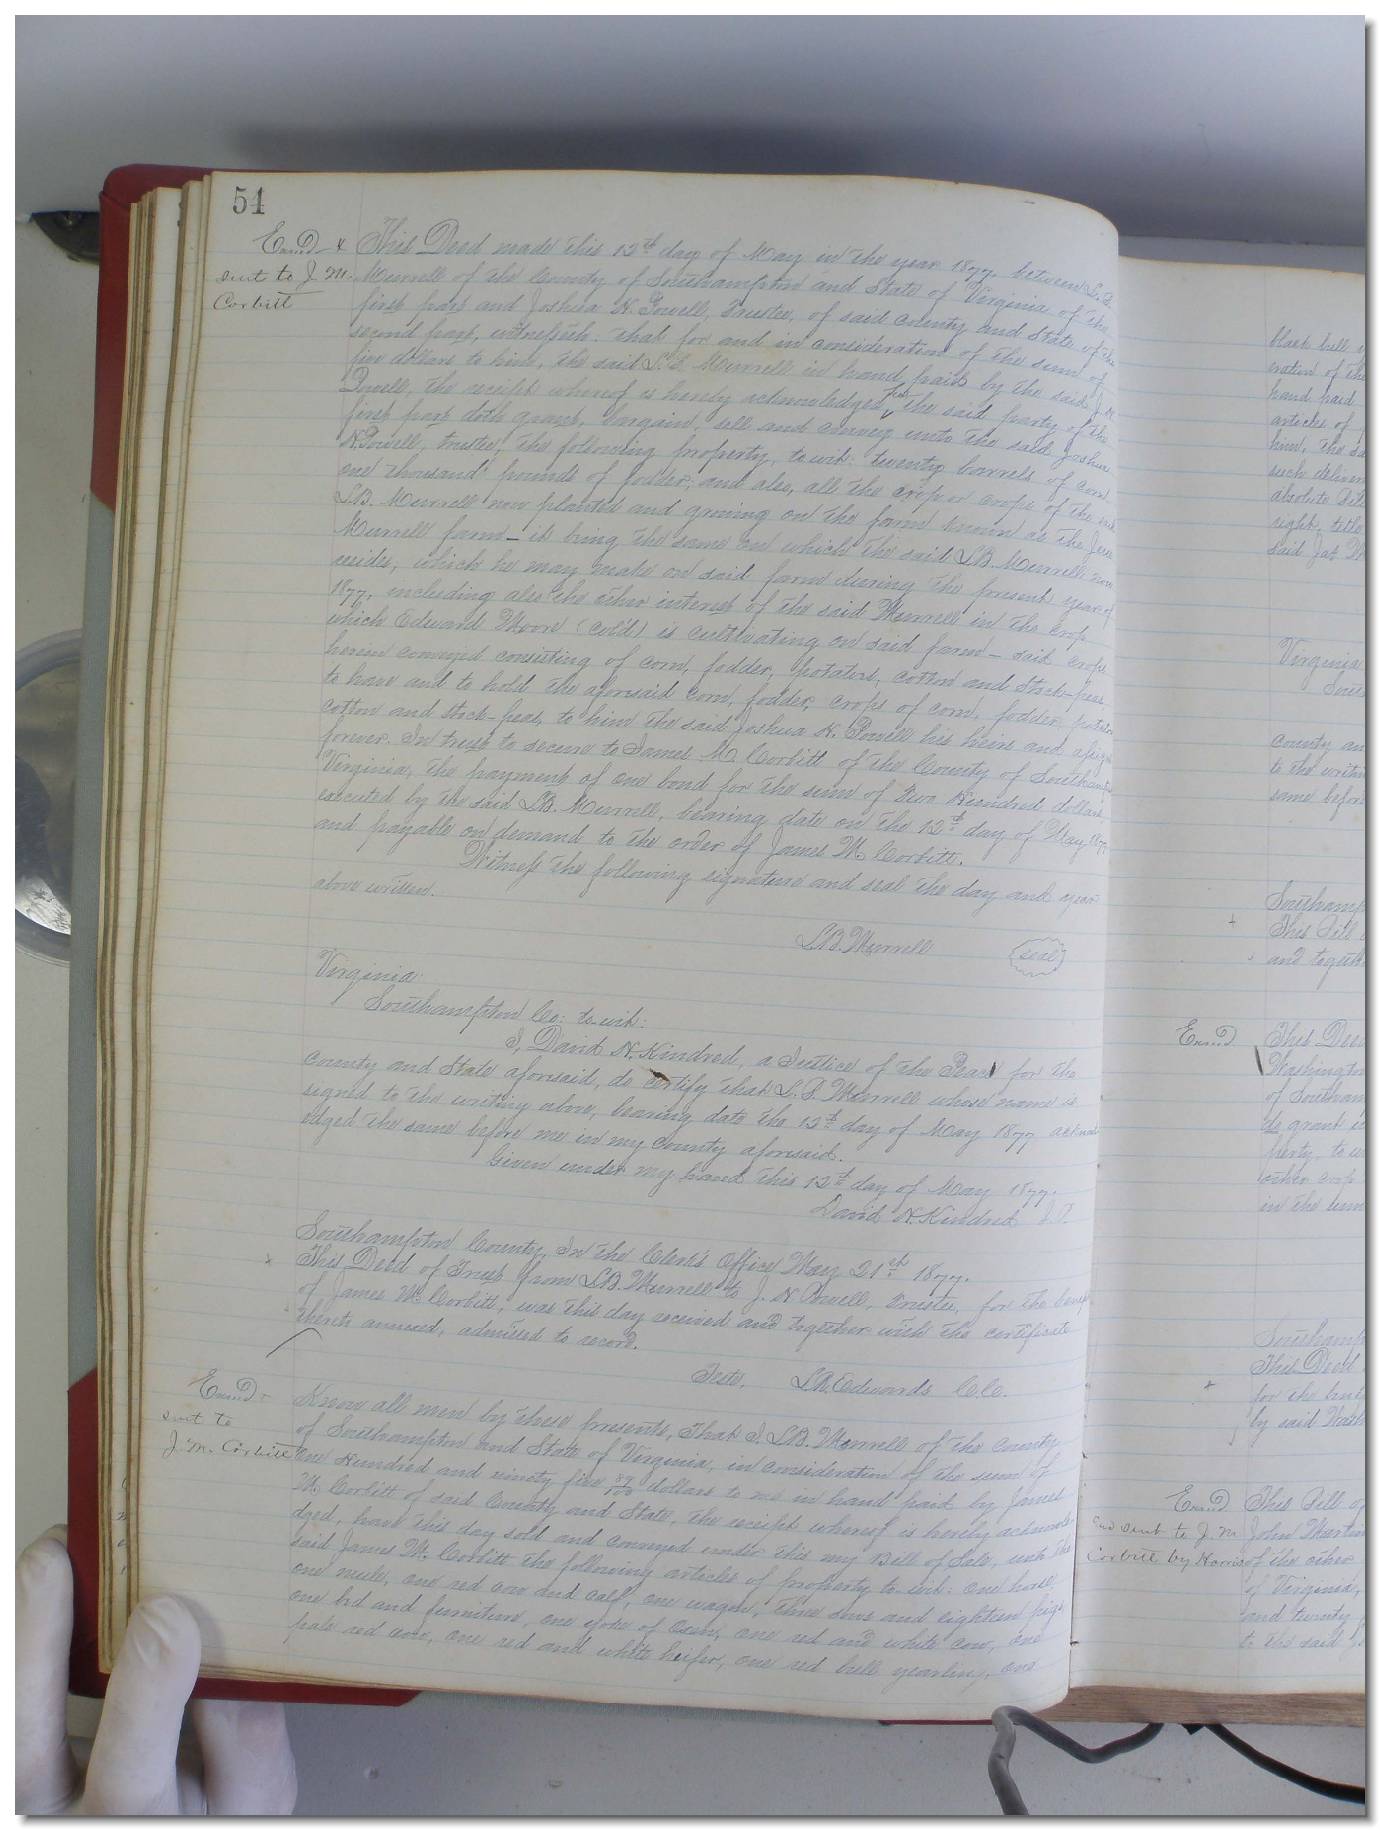 54
Exmd &
sent to J. M.
Corbitt
This Deed made this 12th day of May in the year 1877. between L. B.
Murrell of the County of Southampton and State of Virginia of the
first part and Joshua N. Powell, Trustee, of said county and State of the
second part, witnesseth: That for and in consideration of the sum of
five dollars to him, the said L. B. Murrell in hand paid by the said J. N.
Powell, the receipt whereof is hereby acknowledged, the said party of the
first part doth grant, bargain, sell and convey unto the said Joshua
N. Powell, trustee, the following property, to wit: twenty barrels of corn
one thousand pounds of fodder; and also, all the crop or crops of the said
L.B. Murrell now planted and growing on the farm known as the
Murrell farm – it being the same on which the said L.B. Murrell now
resides, which he may make on said farm during the present year of
1877, including also the other interest of the said Murrell in the crop
which Edward Moore (cold) is cultivating on said farm – said crops
herein conveyed consisting of corn, fodder, potatoes, cotton and stock-peas
to have and to hold the aforesaid corn, fodder, crops of corn, fodder, potatoes
cotton and stock-peas, to him the said Joshua N. Powell his heirs and assigns
forever. In trust to secure to James M. Corbitt of the County of Southampton
Virginia, the payment of one bond for the sum of Two Hundred dollars
executed by the said L.B. Murrell, bearing date on the 12th day of May 1877
and payable on demand to the order of James M. Corbitt.
Witness the following signature and seal the day and year
above written.
L.B. Murrell (seal)
Virginia:
Southampton Co: to-wit:
I, David N. Kindred, a Justice of the Peace for the
county and State aforesaid, do certify that L. B. Murrell whose name is
signed to the writing above, bearing date the 12th day of May 1877 acknowl
edged the same before me in my county aforesaid.
Given under my hand this 12th day of May 1877.
David N. Kindred J.P.
Southampton County, In the Clerk's Office May 21st 1877.
This Deed of Trust from L.B. Murrell to J. N. Powell, Trustee, for the benefit
of James M. Corbitt, was this day received and together with the certificate
thereto annexed, admitted to record.
Teste, L.R. Edwards C.C.
Exmd
sent to
J. M. Corbitt
Know all men by these presents, That I L.B. Murrell of the County
of Southampton and State of Virginia, in consideration of the sum of
one Hundred and ninety five 87/100 dollars to me in hand paid by James
M. Corbitt of said County and State, the receipt whereof is hereby acknowle
dged, have this day sold and conveyed under this my Bill of Sale, unto the
said James M. Corbitt the following articles of property to-wit: one horse,
one mule, one red cow and calf, one wagon, three sows and eighteen pigs
one bed and furniture, one yoke of Oxen, one red and white cow, one
pale red cow, one red and white heifer, one red bull yearling, one
black bull
eration of the
hand paid
articles of
him, the sa
such deliver
absolute
right, title
said Jas
Virginia
County an
to the writin
same before
Southamp
This Bill
and togeth
Exmd
This Deed
Washington
of Southam
do grant
perty, to w
other crop
in the
Southamp
This Deed
for the
by said
Exmd
and sent to J. M.
Corbitt by Harris
This Bill of
John Martin
of the other
of Virginia,
and twenty
to the said